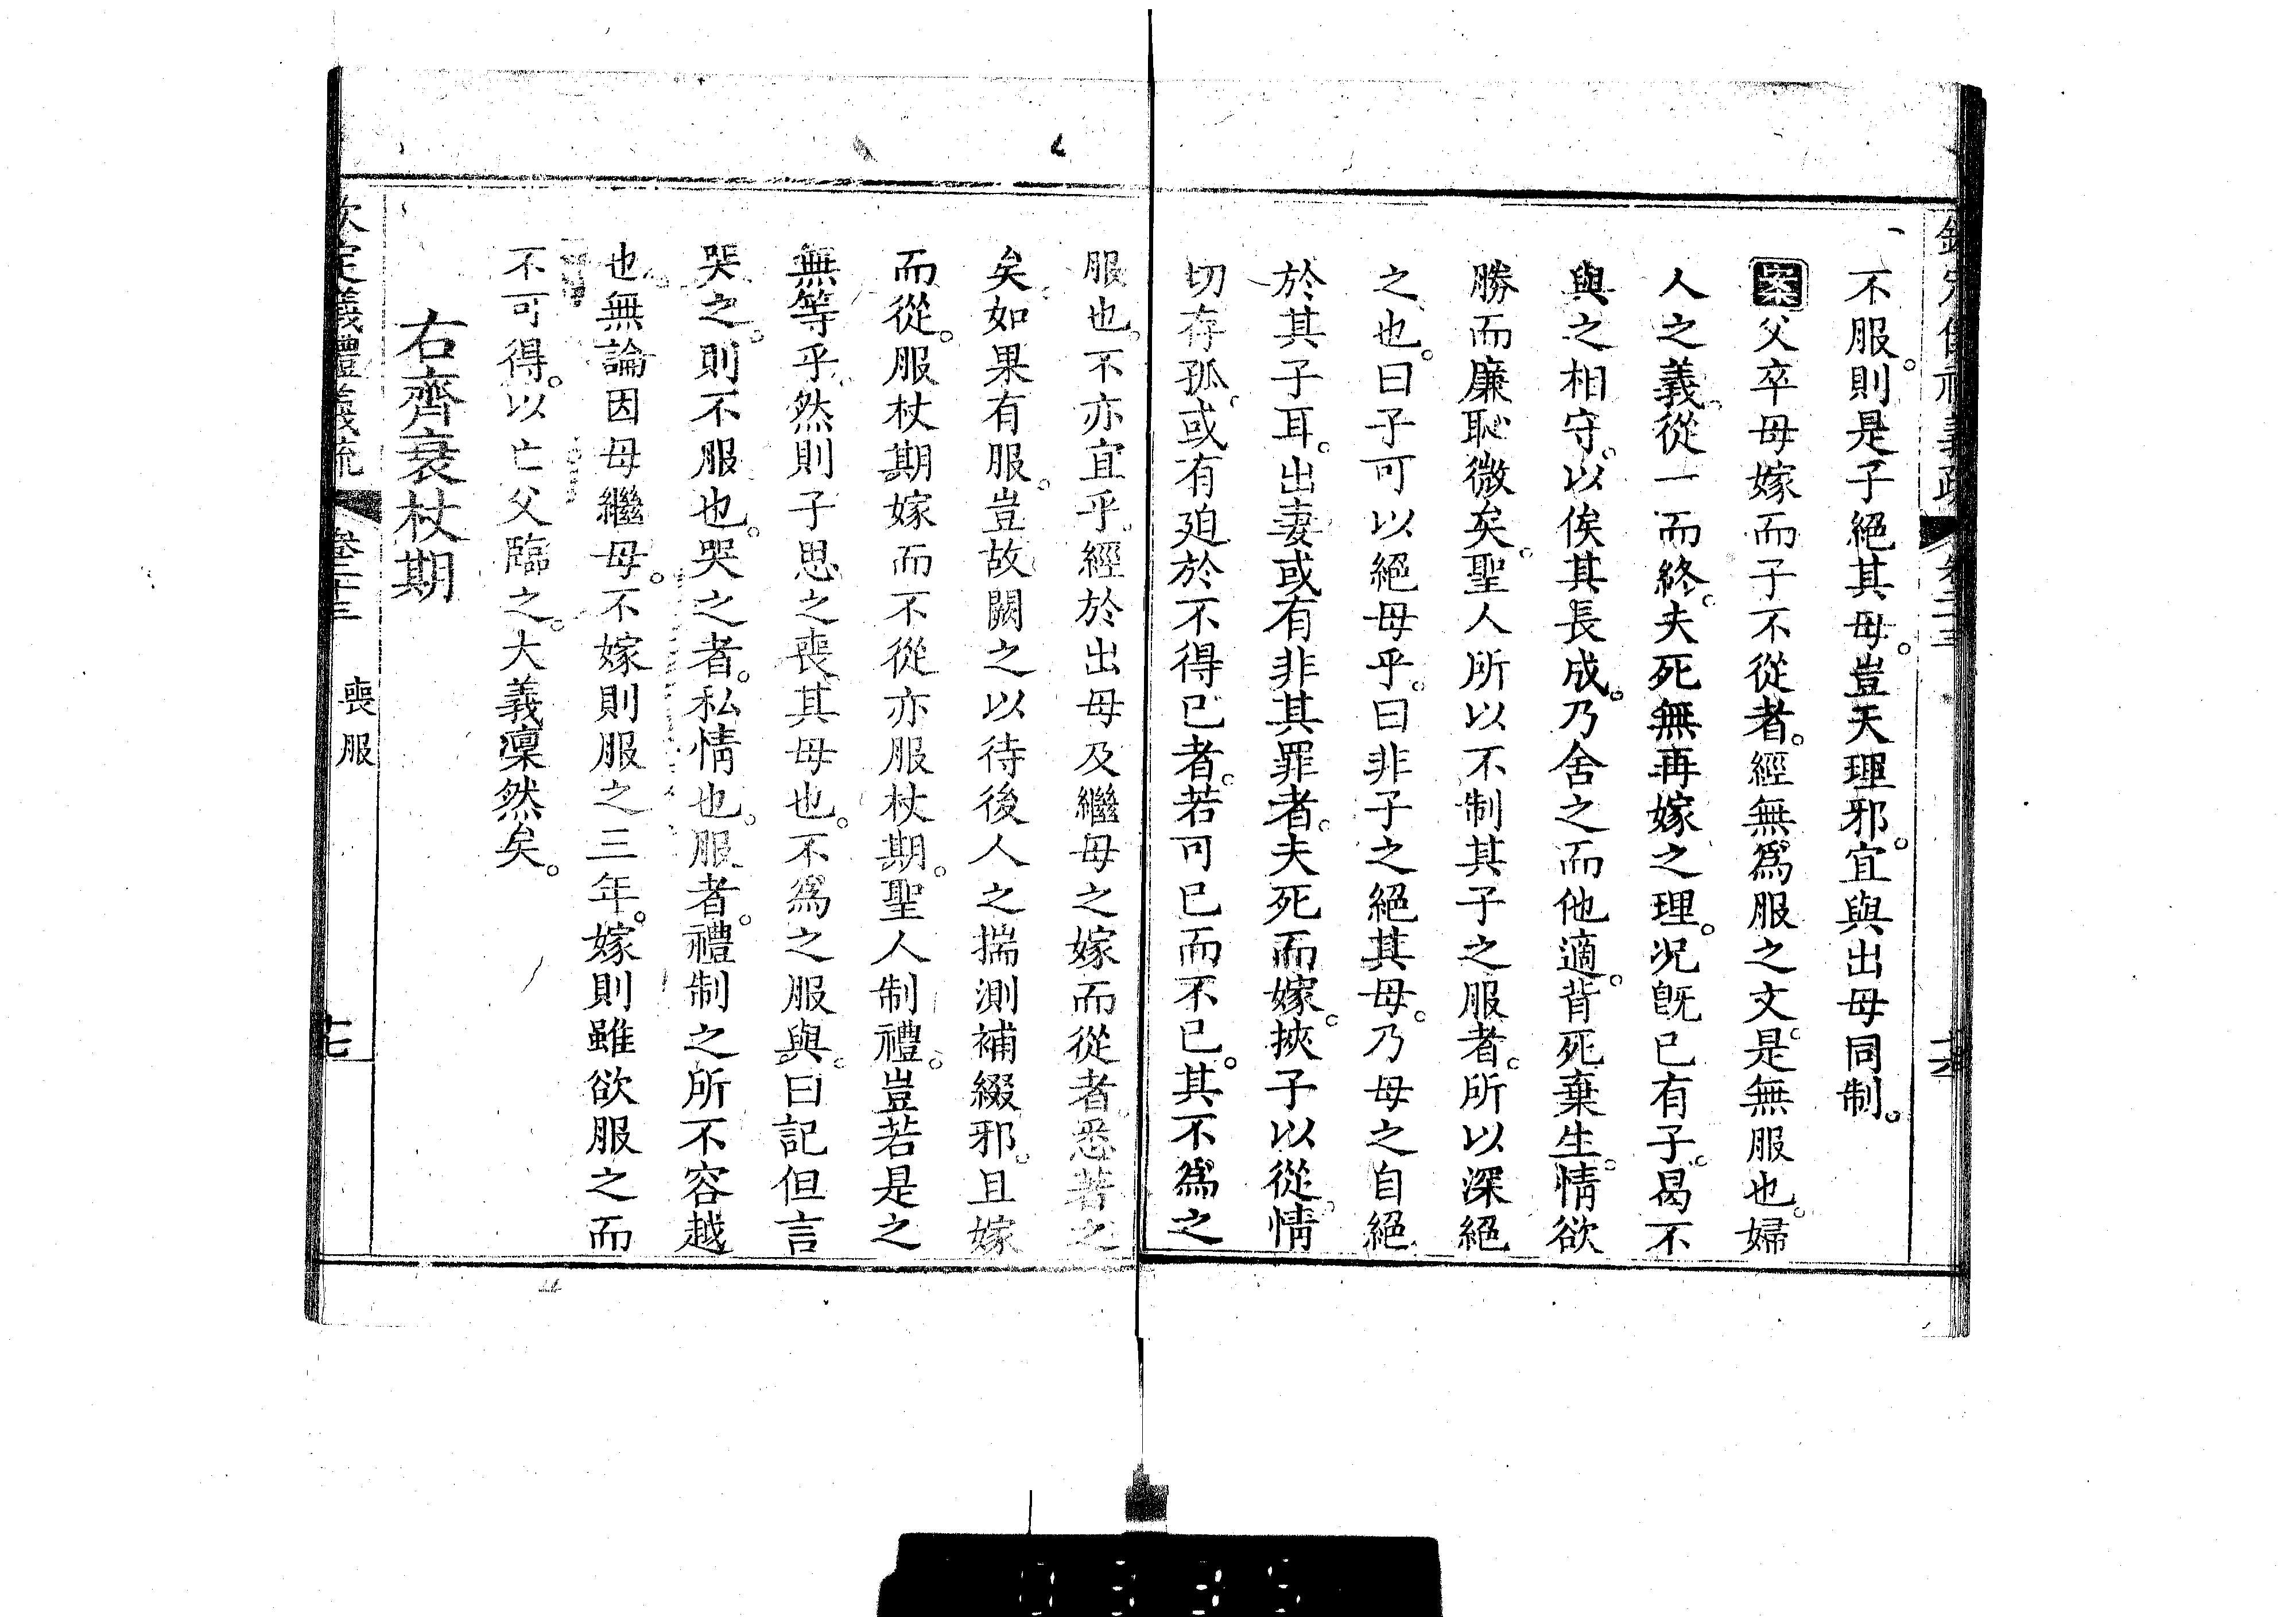 不服。則是子絕其母。豈天理邪。宜與出母同制。
案父卒母嫁而子不從者。經無為服之文。是無服也。婦
人之義。從一而終。夫死無再嫁之理。况旣已有子。曷不
與之相守。以俟其長成。乃舍之而他適。背死棄生。情欲
勝而廉恥微矣。聖人所以不制其子之服者。所以深絕
之也。曰子可以絕母乎。曰非子之絕其母。乃母之自絕
於其子耳。出妻或有非其罪者。夫死而嫁。挾子以從。情
切存孤。或有廹於不得已者。若可已而不已。其不為之
服也。不亦宜乎。經於出母及繼母之嫁而從者。悉著之
矣。如果有服。豈故闕之以待後人之揣測補綴邪。且嫁
而從。服杖期嫁而不從亦服杖期。聖人制禮。豈若是之
無等乎。然則子思之喪其母也。不為之服與。曰記但言
哭之。則不服也。哭之者。私情也。服者。禮制之所不容越
也。無論因母繼母。不嫁則服之三年。嫁則雖欲服之而
不可得。以亡父臨之。大義凜然矣。
右齊衰杖期
欽定儀禮義疏 卷二十三 喪服 十七